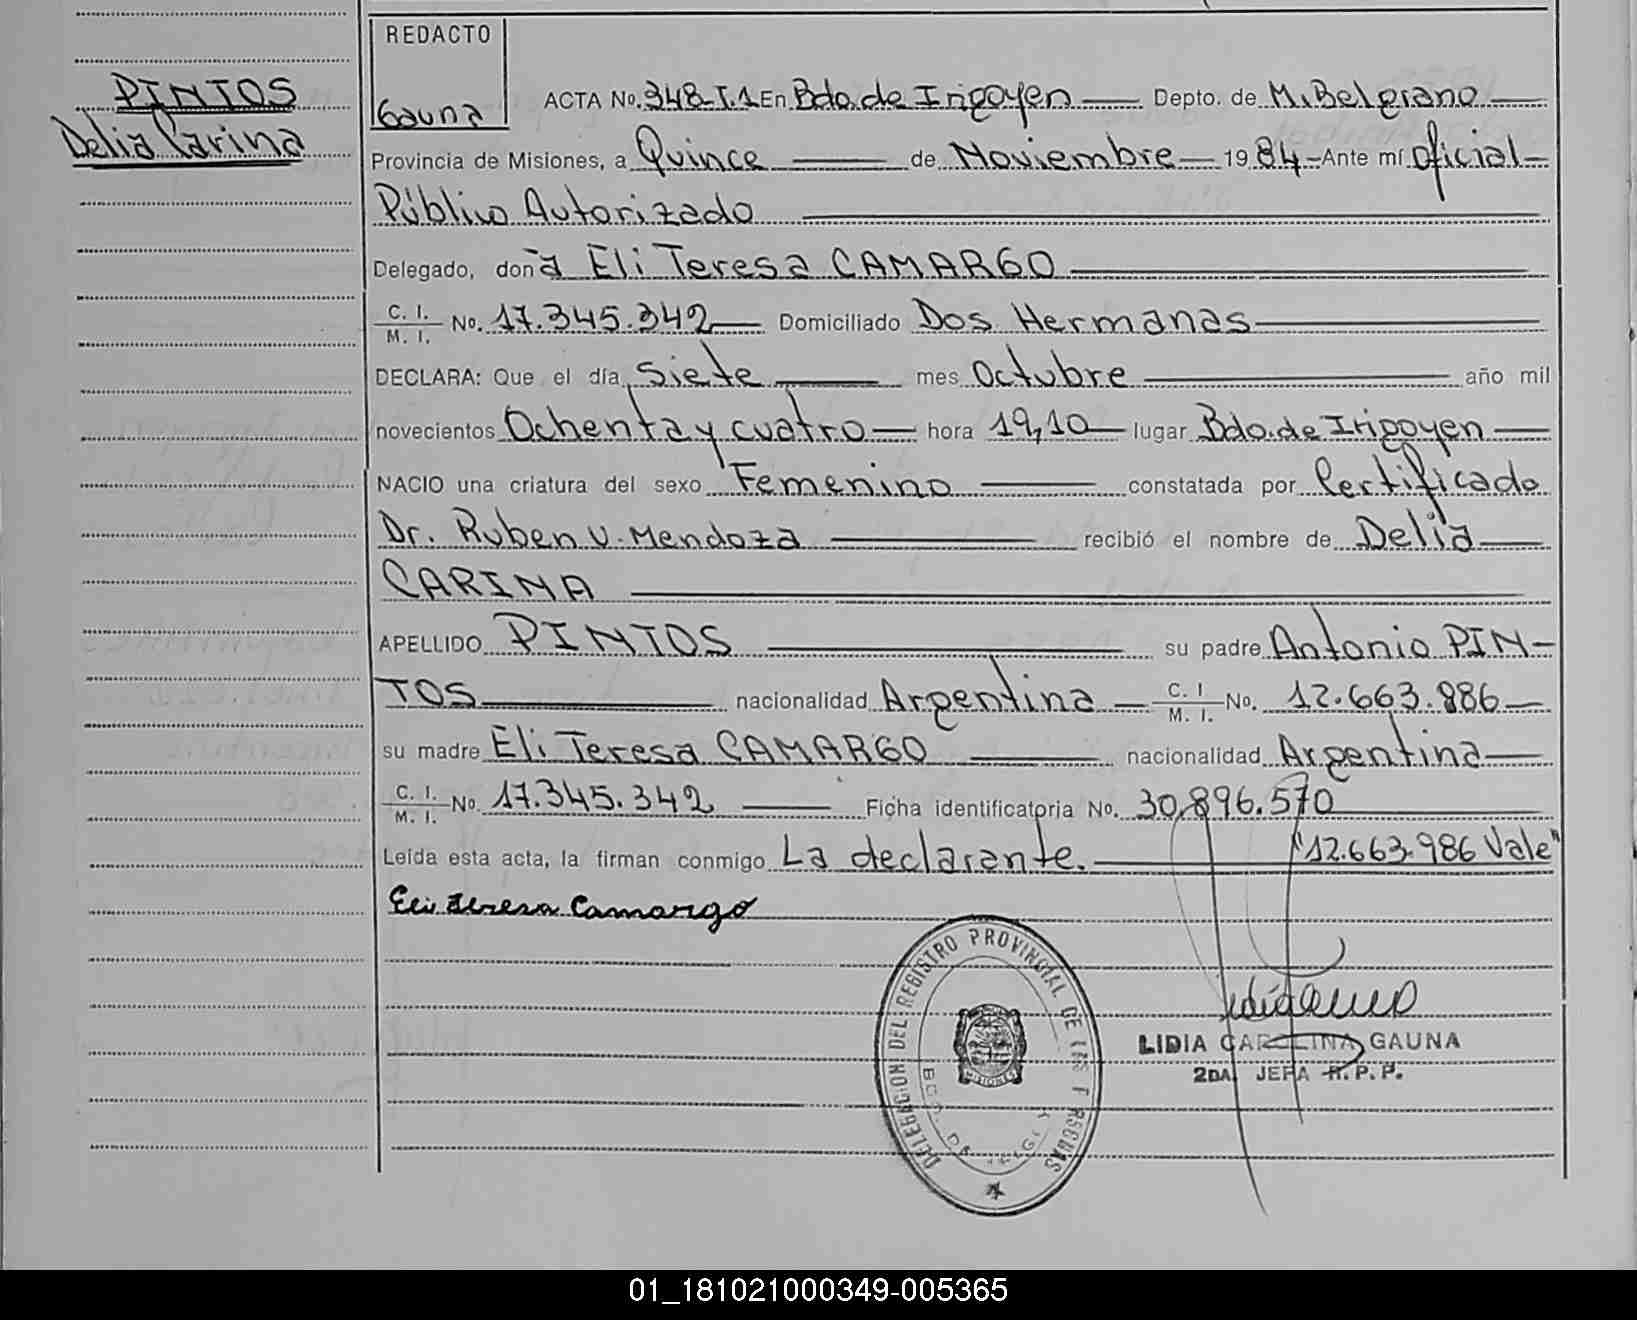 REDACTO
PINTOS
Delia Carina
Gauna
ACTA No. 348-T.1 En Bdo. de Irigoyen Depto. de M. Belgrano
Provincia de Misiones, a Quince de Noviembre 19 84 - Ante mí Oficial
Público Autorizado
Delegado, don a Eli Teresa CAMARGO
C. I. M. I. No. 17.345.342 Domiciliado Dos Hermanas
DECLARA: Que el día Siete mes Octubre año mil
novecientos Ochenta y cuatro hora 19,10 lugar Bdo. de Irigoyen
NACIO una criatura del sexo Femenino constatada por Certificado
Dr. Ruben V. Mendoza recibió el nombre de Delia
CARINA
APELLIDO PINTOS su padre Antonio PIN-
TOS nacionalidad Argentina C. I M. I. No. 12.663.886
su madre Eli Teresa CAMARGO nacionalidad Argentina
C. I. M. I. No. 17.345.342 Ficha identificatoria No. 30.896.570
Leída esta acta, la firman conmigo La declarante. "12.663.986 Vale"
Eli Teresa Camargo
DELEGACION DEL REGISTRO PROVINCIAL DE LAS PERSONAS
BDO. DE IRIGOY
MISIONES
LIDIA CAROLINA GAUNA
2DA. JEFA R. P. P.
01_181021000349-005365